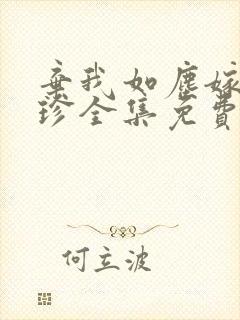 弃我如尘嫁
珍全集免费
何立波